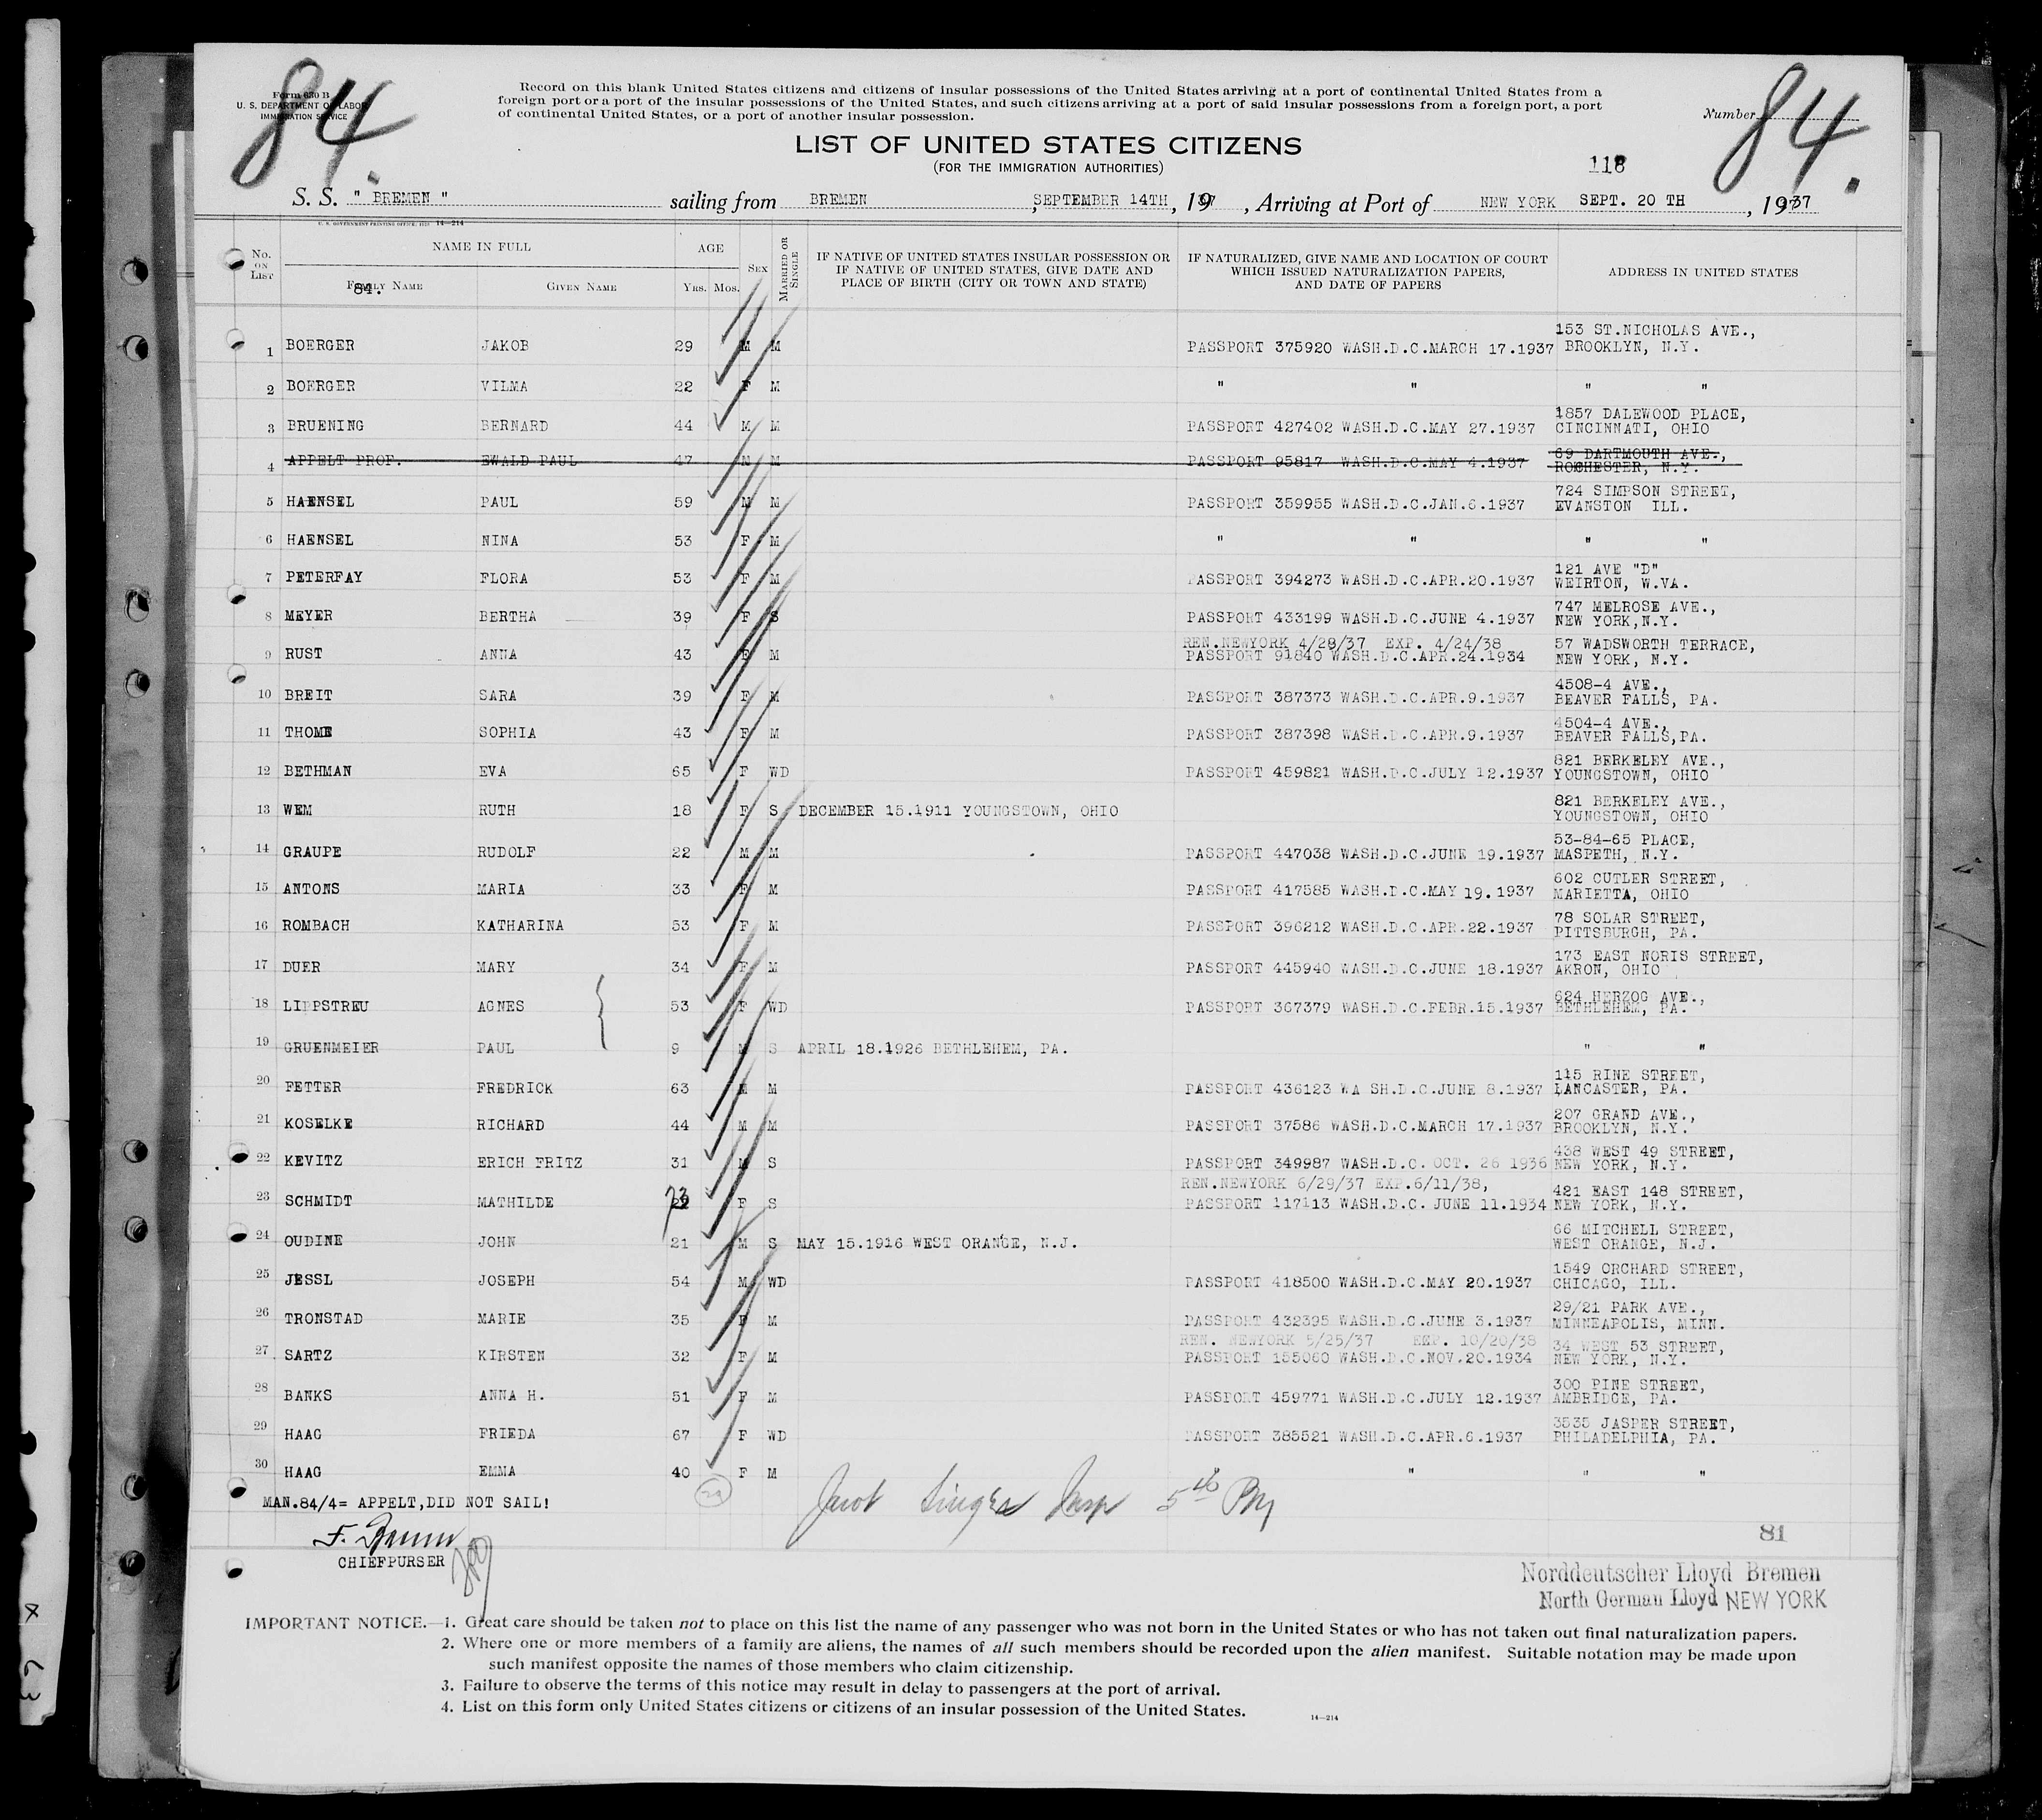 84. 84.
Form 630 B
U. S. DEPARTMENT OF LABOR
IMMIGRATION SERVICE
Record on this blank United States citizens and citizens of insular possessions of the United States arriving at a port of continental United States from a
foreign port or a port of the insular possessions of the United States, and such citizens arriving at a port of said insular possessions from a foreign port, a port
of continental United States, or a port of another insular possession.
Number
LIST OF UNITED STATES CITIZENS
(FOR THE IMMIGRATION AUTHORITIES)
118
S. S. " BREMEN " sailing from BREMEN, SEPTEMBER 14TH, 1937, Arriving at Port of NEW YORK SEPT. 20 TH, 1937
U. S. GOVERNMENT PRINTING OFFICE: 14—214
No. ON LIST
NAME IN FULL
84.
FAMILY NAME GIVEN NAME
AGE
YRS. MOS.
SEX
MARRIED OR SINGLE
IF NATIVE OF UNITED STATES INSULAR POSSESSION OR
IF NATIVE OF UNITED STATES, GIVE DATE AND
PLACE OF BIRTH (CITY OR TOWN AND STATE)
IF NATURALIZED, GIVE NAME AND LOCATION OF COURT
WHICH ISSUED NATURALIZATION PAPERS,
AND DATE OF PAPERS
ADDRESS IN UNITED STATES
153 ST.NICHOLAS AVE.,
1 BOERGER JAKOB 29 M M PASSPORT 375920 WASH.D.C.MARCH 17.1937 BROOKLYN, N.Y.
2 BOERGER VILMA 22 F M " " " "
1857 DALEWOOD PLACE,
3 BRUENING BERNARD 44 M M PASSPORT 427402 WASH.D.C.MAY 27.1937 CINCINNATI, OHIO
69 DARTMOUTH AVE.,
4 APPELT PROF. EWALD PAUL 47 M M PASSPORT 95817 WASH.D.C.MAY 4.1937 ROCHESTER, N.Y.
724 SIMPSON STREET,
5 HAENSEL PAUL 59 M M PASSPORT 359955 WASH.D.C.JAN.6.1937 EVANSTON ILL.
6 HAENSEL NINA 53 F M " " " "
121 AVE "D"
7 PETERFAY FLORA 53 F M PASSPORT 394273 WASH.D.C.APR.20.1937 WEIRTON, W.VA.
747 MELROSE AVE.,
8 MEYER BERTHA 39 F S PASSPORT 433199 WASH.D.C.JUNE 4.1937 NEW YORK,N.Y.
REN.NEWYORK 4/28/37 EXP. 4/24/38 57 WADSWORTH TERRACE,
9 RUST ANNA 43 F M PASSPORT 91840 WASH.D.C.APR.24.1934 NEW YORK, N.Y.
4508-4 AVE.,
10 BREIT SARA 39 F M PASSPORT 387373 WASH.D.C.APR.9.1937 BEAVER FALLS, PA.
4504-4 AVE.,
11 THOME SOPHIA 43 F M PASSPORT 387398 WASH.D.C.APR.9.1937 BEAVER FALLS,PA.
821 BERKELEY AVE.,
12 BETHMAN EVA 65 F WD PASSPORT 459821 WASH.D.C.JULY 12.1937 YOUNGSTOWN, OHIO
821 BERKELEY AVE.,
13 WEM RUTH 18 F S DECEMBER 15.1911 YOUNGSTOWN, OHIO YOUNGSTOWN, OHIO
53-84-65 PLACE,
14 GRAUPE RUDOLF 22 M M PASSPORT 447038 WASH.D.C.JUNE 19.1937 MASPETH, N.Y.
602 CUTLER STREET,
15 ANTONS MARIA 33 F M PASSPORT 417585 WASH.D.C.MAY 19.1937 MARIETTA, OHIO
78 SOLAR STREET,
16 ROMBACH KATHARINA 53 F M PASSPORT 396212 WASH.D.C.APR.22.1937 PITTSBURGH, PA.
173 EAST NORIS STREET,
17 DUER MARY 34 F M PASSPORT 445940 WASH.D.C.JUNE 18.1937 AKRON, OHIO
624 HERZOG AVE.,
18 LIPPSTREU AGNES 53 F WD PASSPORT 367379 WASH.D.C.FEBR.15.1937 BETHLEHEM, PA.
19 GRUENMEIER PAUL 9 M S APRIL 18.1926 BETHLEHEM, PA. " "
115 RINE STREET,
20 FETTER FREDRICK 63 M M PASSPORT 436123 WA SH.D.C.JUNE 8.1937 LANCASTER, PA.
207 GRAND AVE.,
21 KOSELKE RICHARD 44 M M PASSPORT 37586 WASH.D.C.MARCH 17.1937 BROOKLYN, N.Y.
438 WEST 49 STREET,
22 KEVITZ ERICH FRITZ 31 M S PASSPORT 349987 WASH.D.C. OCT. 26 1936 NEW YORK, N.Y.
REN.NEWYORK 6/29/37 EXP.6/11/38, 421 EAST 148 STREET,
23 SCHMIDT MATHILDE 73 F S PASSPORT 117113 WASH.D.C. JUNE 11.1934 NEW YORK, N.Y.
66 MITCHELL STREET,
24 OUDINE JOHN 21 M S MAY 15.1916 WEST ORANGE, N.J. WEST ORANGE, N.J.
1549 ORCHARD STREET,
25 JESSL JOSEPH 54 M WD PASSPORT 418500 WASH.D.C.MAY 20.1937 CHICAGO, ILL.
29/21 PARK AVE.,
26 TRONSTAD MARIE 35 F M PASSPORT 432395 WASH.D.C.JUNE 3.1937 MINNEAPOLIS, MINN.
REN. NEWYORK 5/25/37 EXP. 10/20/38 34 WEST 53 STREET,
27 SARTZ KIRSTEN 32 F M PASSPORT 155060 WASH.D.C.NOV.20.1934 NEW YORK, N.Y.
300 PINE STREET,
28 BANKS ANNA H. 51 F M PASSPORT 459771 WASH.D.C.JULY 12.1937 AMBRIDGE, PA.
3535 JASPER STREET,
29 HAAG FRIEDA 67 F WD PASSPORT 385521 WASH.D.C.APR.6.1937 PHILADELPHIA, PA.
30 HAAG EMMA 40 F M " " "
MAN.84/4= APPELT,DID NOT SAIL! 29
5th
81
CHIEFPURSER
Norddeutscher Lloyd Bremen
North German Lloyd NEW YORK
IMPORTANT NOTICE.—1. Great care should be taken not to place on this list the name of any passenger who was not born in the United States or who has not taken out final naturalization papers.
2. Where one or more members of a family are aliens, the names of all such members should be recorded upon the alien manifest. Suitable notation may be made upon
such manifest opposite the names of those members who claim citizenship.
3. Failure to observe the terms of this notice may result in delay to passengers at the port of arrival.
4. List on this form only United States citizens or citizens of an insular possession of the United States.
14—214